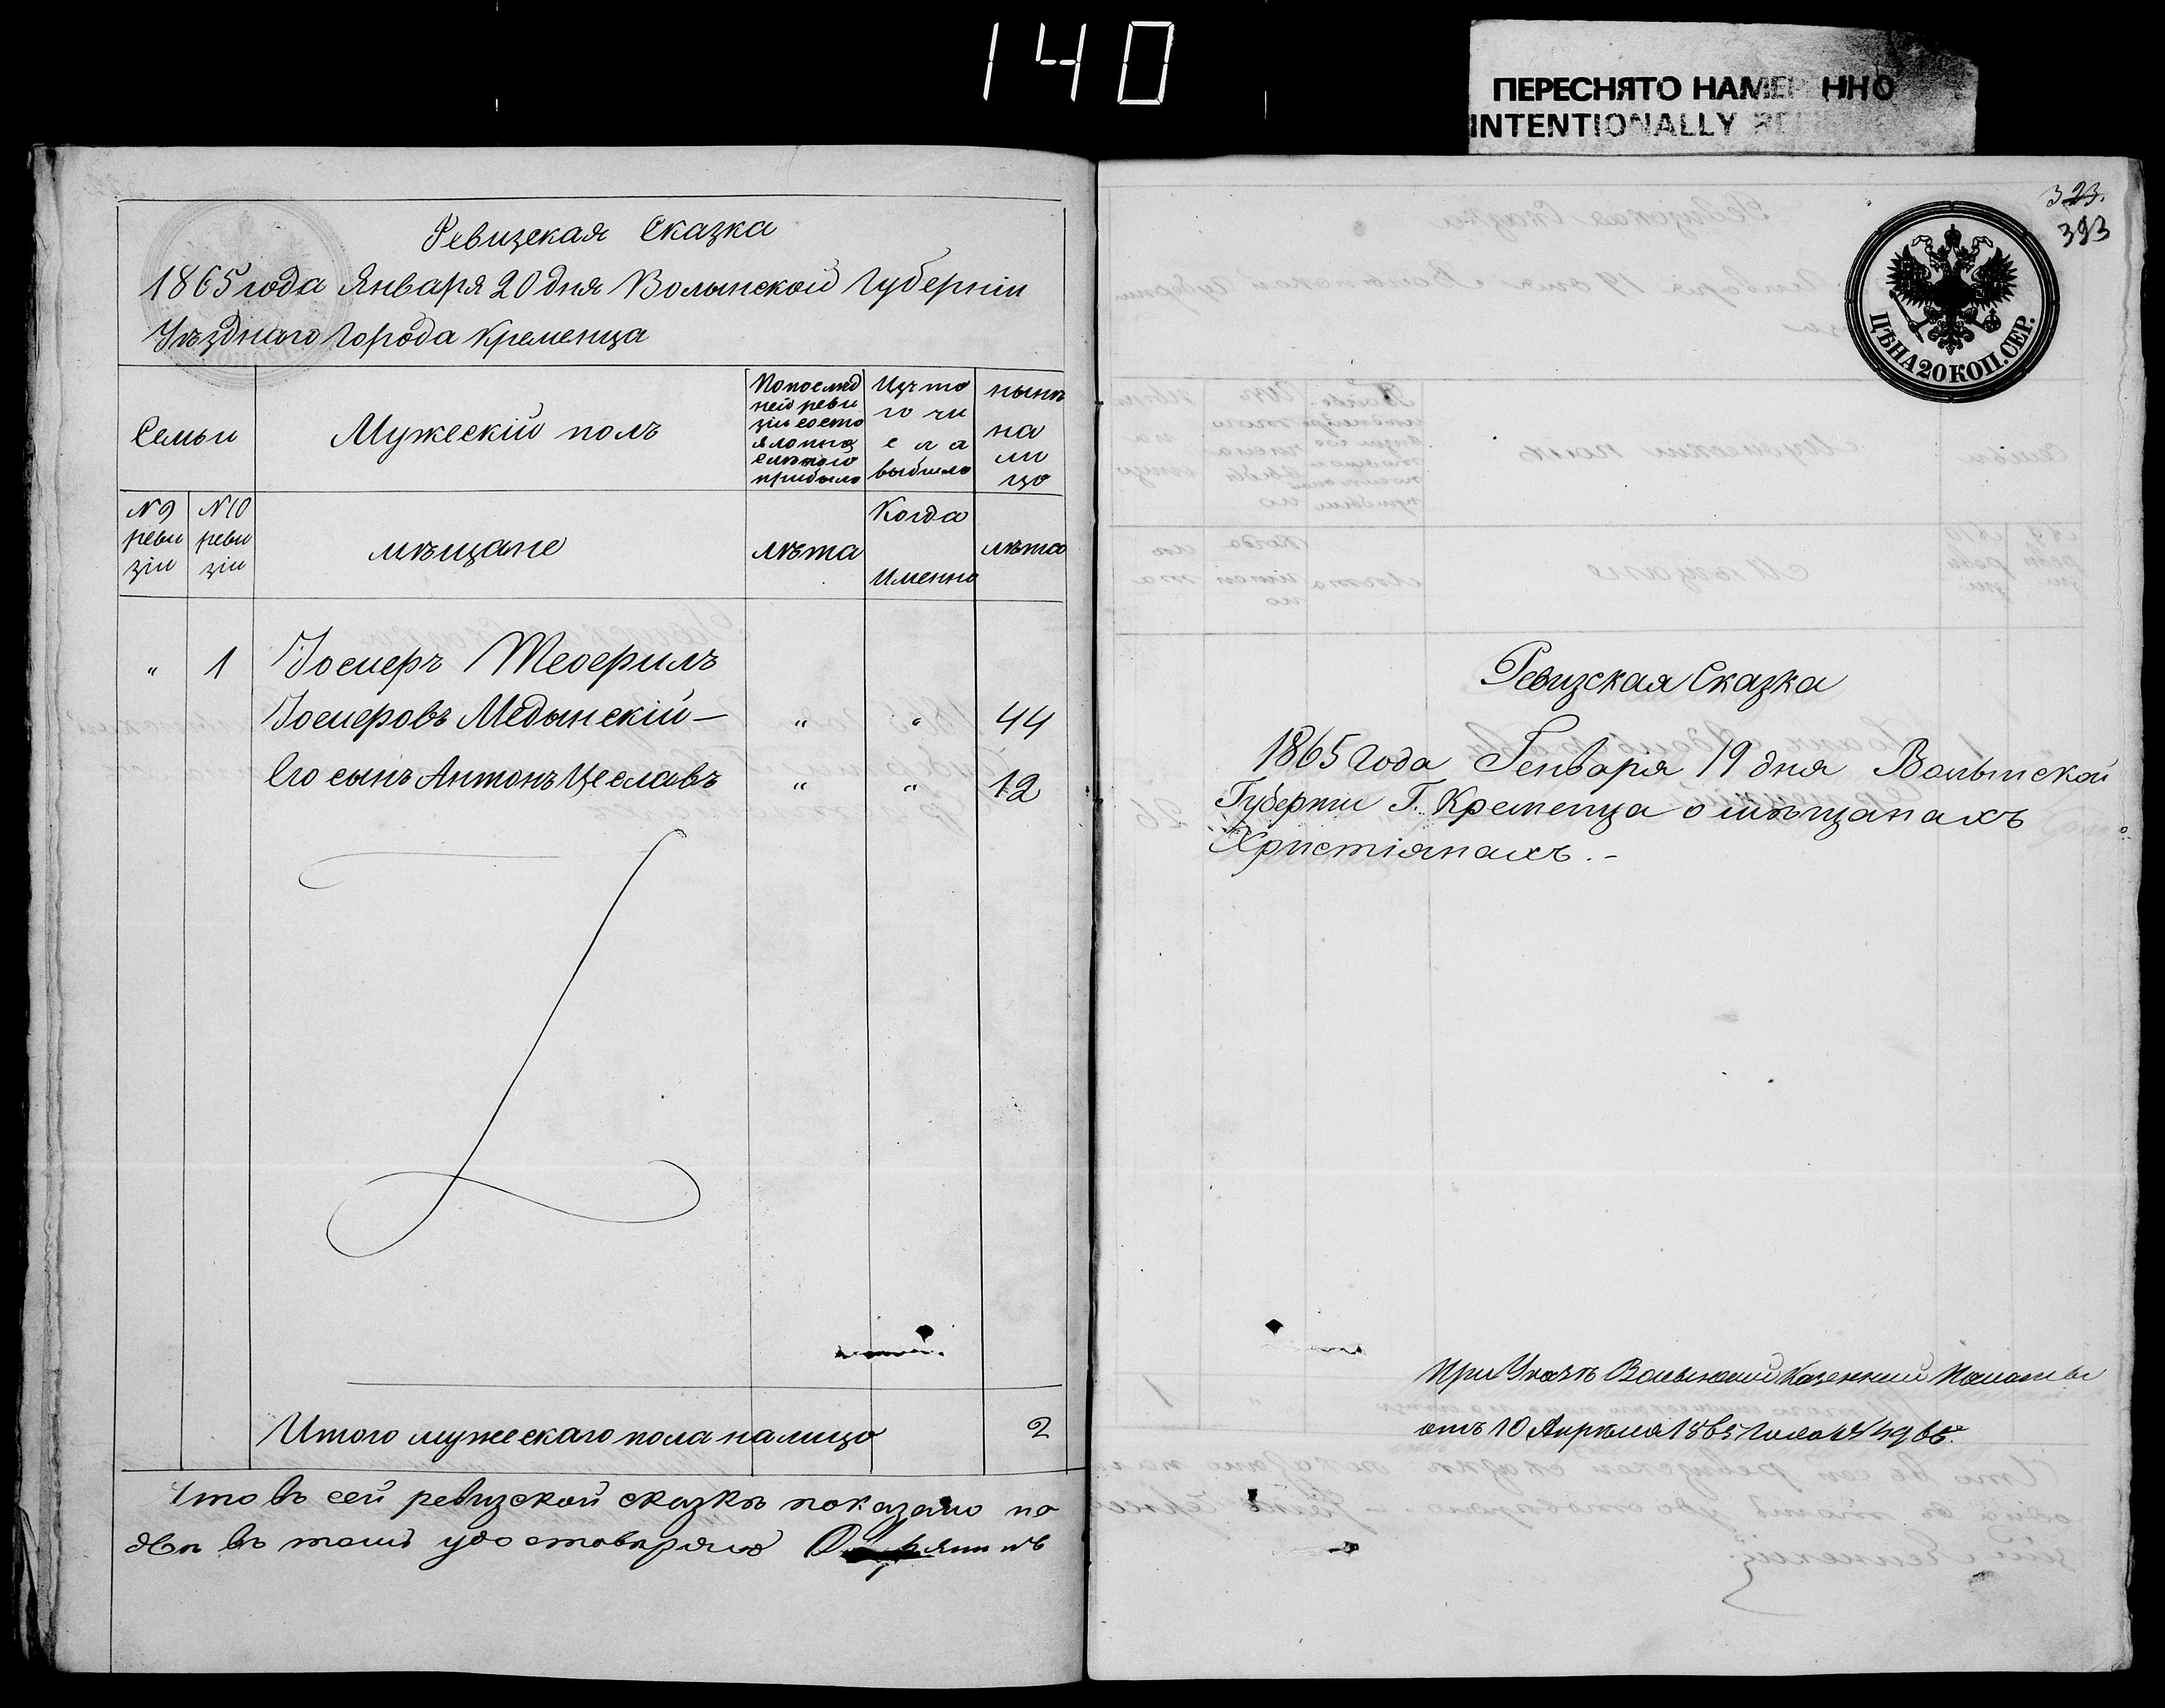 140
ПЕРЕСНЯТО НАМЕ ННО
INTENTIONALLY
Ревизская Сказка
1865 года Января 20 дня Волынской Губерніи
Уѣзднаго Города Кременца
Семьи
Мужескій полъ
По послѣд
ней реви
зіи состо
яло и по
слѣ того
прибыло
Изъ то
го чи
с л а
выбыло
нынѣ
на
ли
цо
№ 9
реви
зіи
№ 10
реви
зіи
мѣщане
лѣта
Когда
Именно
лѣта
" 1 Іосифъ Теофилъ
Іосифовъ Медынскій — " " 44
Его сынъ Антонъ Цеславъ " " 12
Итого мужескаго пола на лицо 2
Что въ сей ревизской сказкѣ показано по
въ томъ удостовѣряю
323.
393
ЦѢНА 20 КОП. СЕР.
Ревизская Сказка
1865 года Генваря 19 дня Волынской
Губерніи Г. Кременца о мѣщанахъ
Христіянахъ. -
При Указѣ Волынской Казенной Палаты
отъ 10 Апрѣля 1865 года №